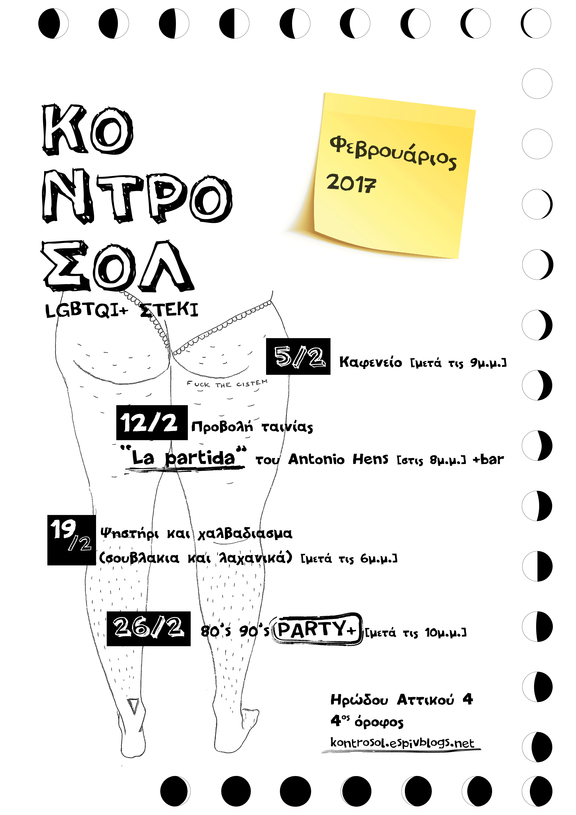 ΚΟ
ΝΤΡΟ
ΣΟΛ
LGBTQI+ ΣΤΕΚΙ
Φεβρουάριος
2017
FUCK THE CISTEM
5/2 Καφενείο [μετά τις 9μ.μ.]
12/2 Προβολή ταινίας
"La partida" του Antonio Hens [στις 8μ.μ.] +bar
19/2 Ψηστήρι και χαλβαδιασμα
(σουβλακια και λαχανικά) [μετά τις 6μ.μ.]
26/2 80's 90's PARTY+ [μετά τις 10μ.μ.]
Ηρώδου Αττικού 4
4ος όροφος
kontrosol.espivblogs.net